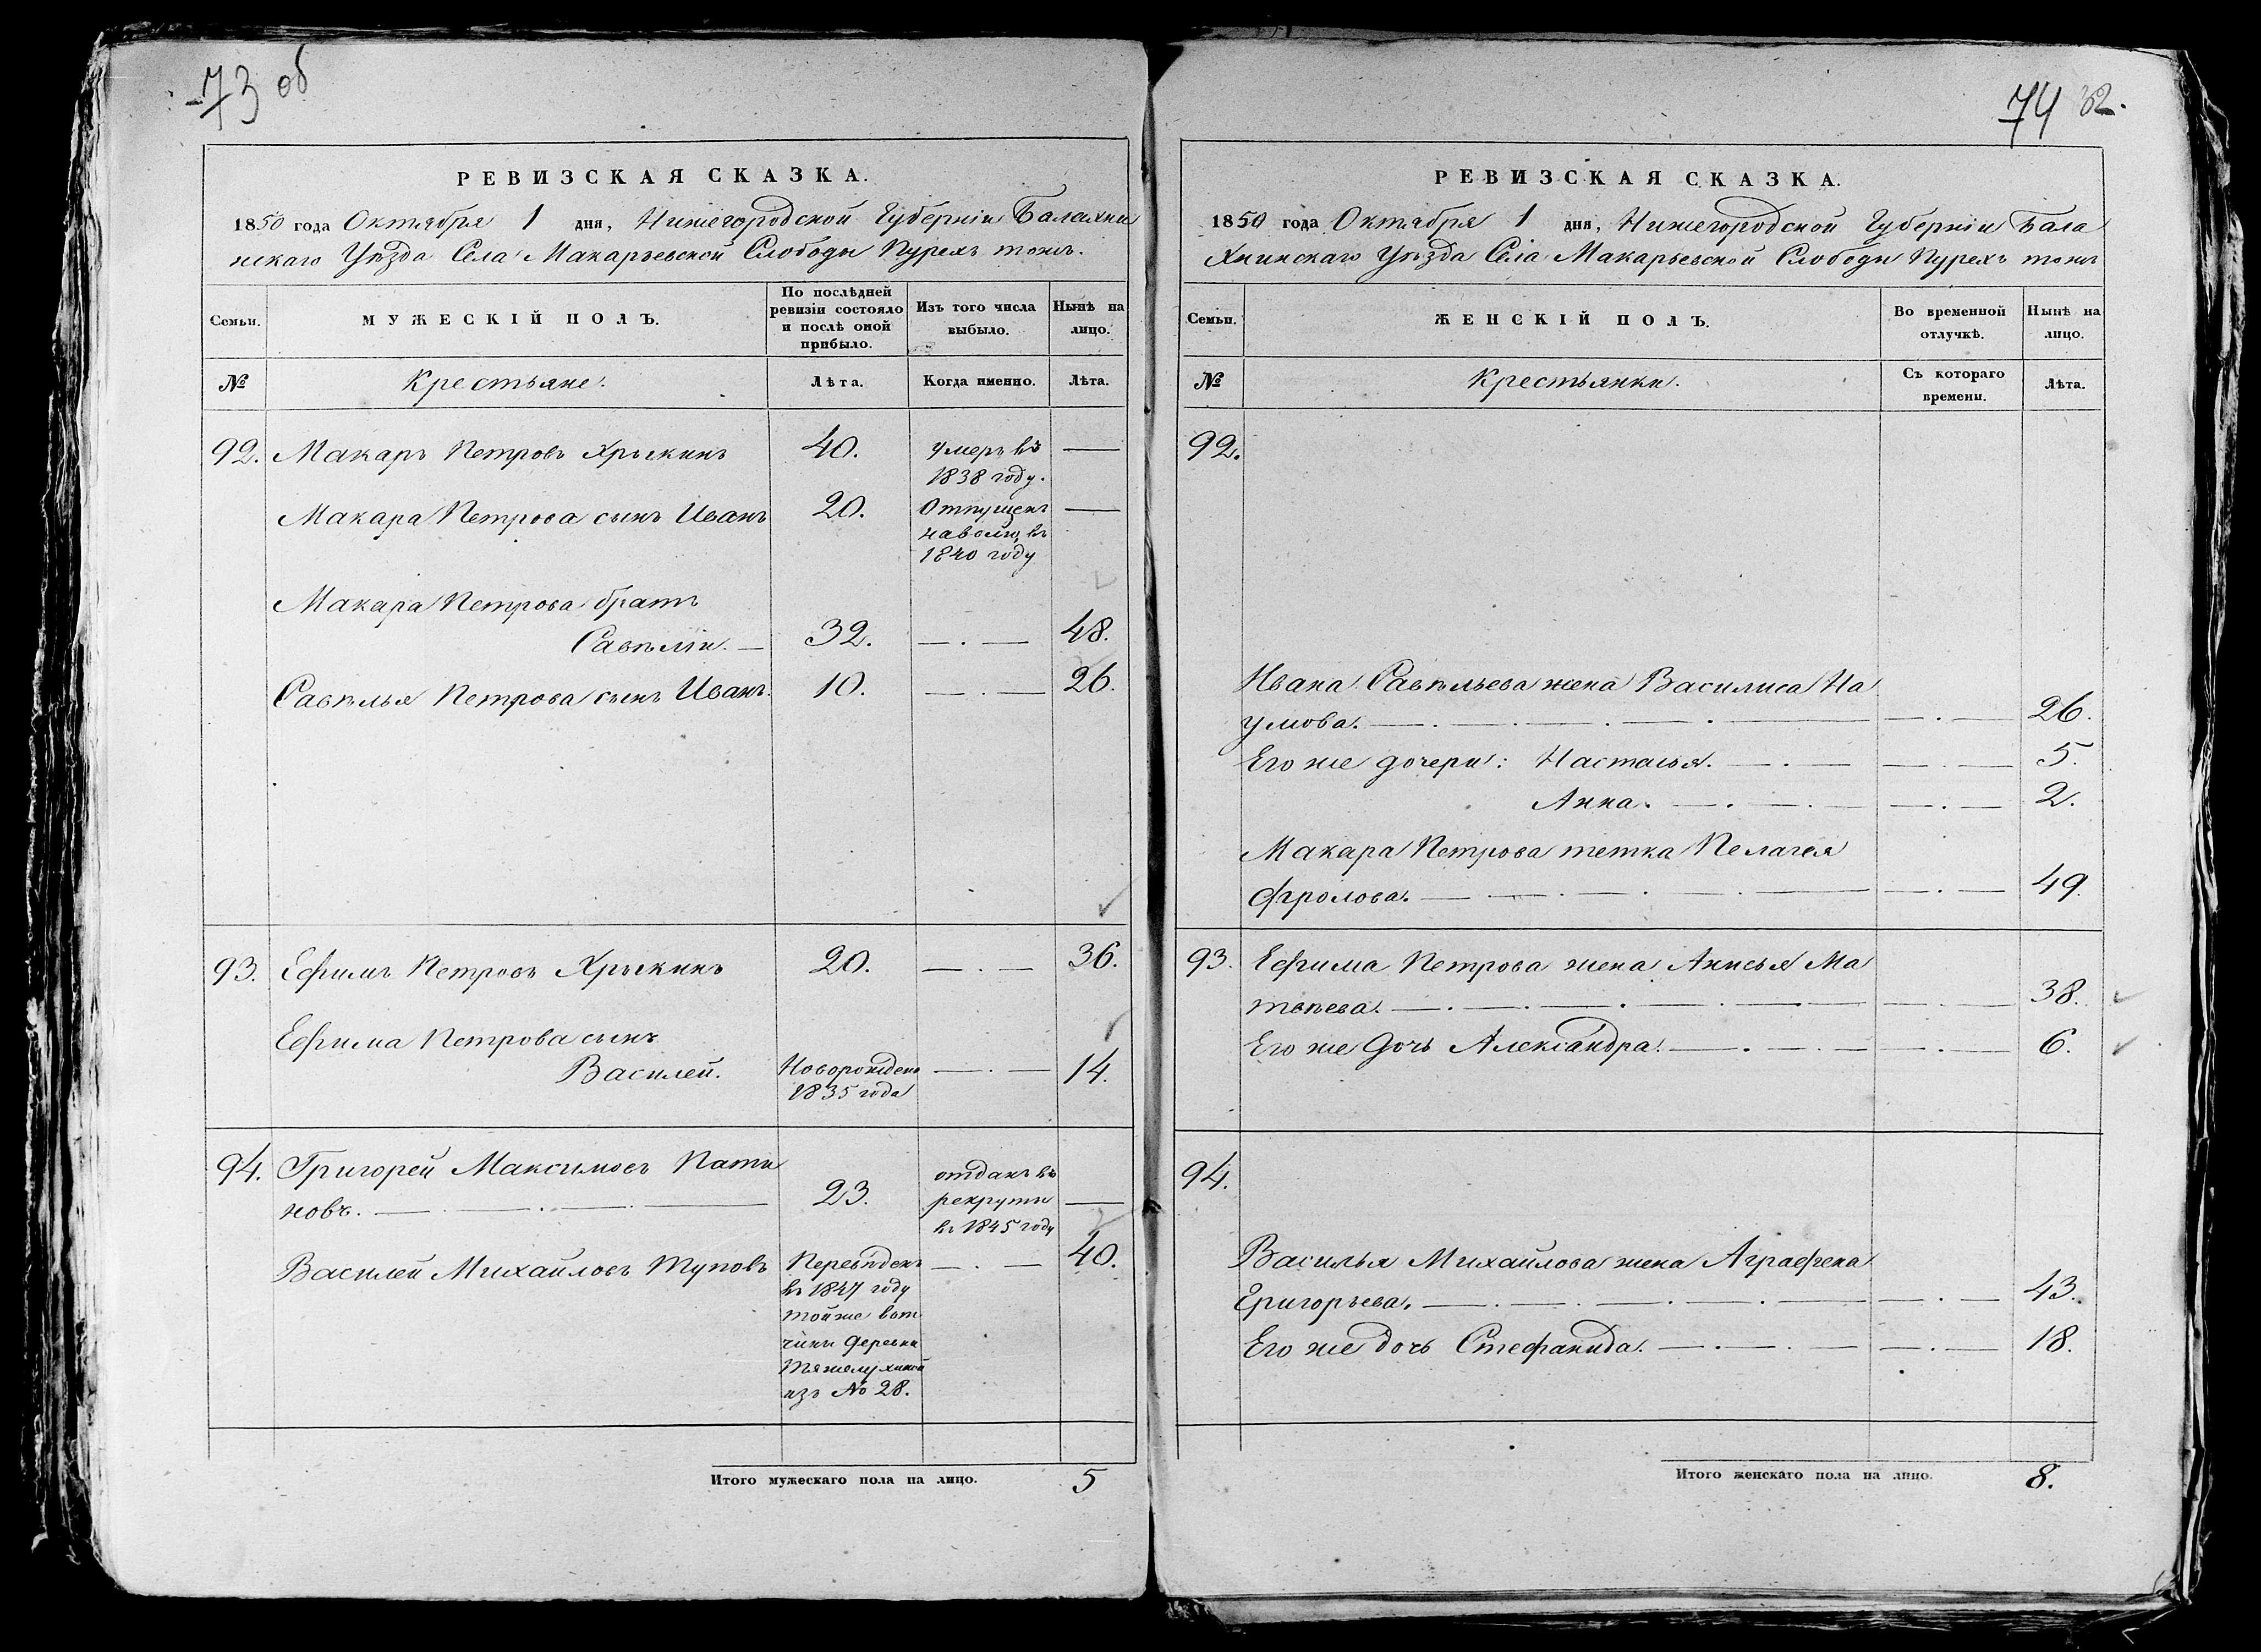 73 об
РЕВИЗСКАЯ СКАЗКА.
1850 года Октября 1 дня, Нижегородской Губернiи Балахни
нскаго Уѣзда Села Макарьевской Слободы Пурехъ тожъ.
Семьи.
МУЖЕСКIЙ ПОЛЪ.
По послѣдней
ревизiи состояло
и послѣ оной
прибыло.
Изъ того числа
выбыло.
Нынѣ на
лицо.
№
Крестьяне.
Лѣта.
Когда именно.
Лѣта.
92. Макаръ Петровъ Хрыкинъ 40. умеръ въ —
1838 году.
Макара Петрова сынъ Иванъ 20. Отпущенъ —
наволю въ
1840 году
Макара Петрова братъ
Савѣлiи. — 32. — . — 48.
Савѣлья Петрова сынъ Иванъ. 10. — . — 26.
93. Ефимъ Петровъ Хрыкинъ 20. — . — 36.
Ефима Петрова сынъ
Василей. Новорожденъ — . — 14.
1835 года
94. Григорей Максимовъ Пати
новъ. — 23. отданъ въ
рекруты —
въ 1845 году
Василей Михайловъ Туповъ Переведенъ — . — 40.
въ 1847 году
тойже вот
чины деревни
Тяжелухиной
изъ № 28.
Итого мужескаго пола на лицо. 5
74 82.
РЕВИЗСКАЯ СКАЗКА.
1850 года Октября 1 дня, Нижегородской Губернiи Бала
хнинскаго Уѣзда Села Макарьевской Слободы Пурехъ тожъ
Семьи.
ЖЕНСКIЙ ПОЛЪ.
Во временной
отлучкѣ.
Нынѣ на
лицо.
№
Крестьянки.
Съ котораго
времени.
Лѣта.
92.
Ивана Савѣльева жена Василиса На
умова. — . — 26.
Его же дочери: Настасья. — . — 5.
Анна. — . — 2.
Макара Петрова тетка Пелагея
Фролова. — . — 49.
93. Ефима Петрова жена Анисья Ма
твѣева. — . — 38.
Его же дочь Александра. — . — 6.
94.
Василья Михайлова жена Аграфена
Григорьева. — . — 43.
Его же дочь Стефанида. — . — 18.
Итого женскаго пола на лицо. 8.